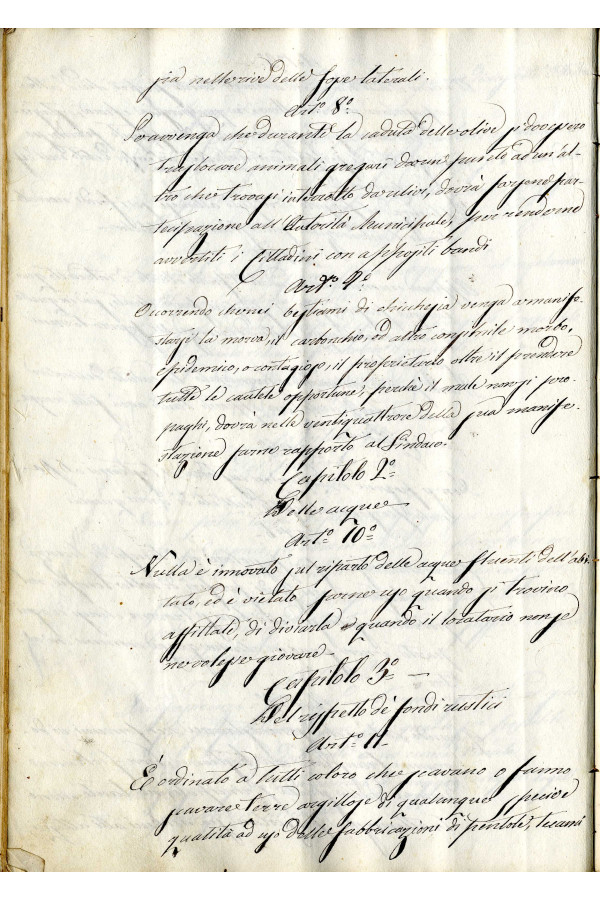 sia nelle rive delle fosse laterali.
Art.º 8º
Sovvenga che durante la caduta delle olive si dovessero
traslocare animali gregari da un punto ad un'al-
tro che trovasi interrotto da ulivi, dovrà farsene par-
tecipazione all'Autorità Municipale, per renderne
avvertiti i Cittadini con appositi bandi
Art.º 9º
Occorrendo che nei bestiami di chicchesia venga a manife-
starsi la morva, il carbonchio, od altro consimile morbo,
epidemico, o contagioso, il proprietario oltre il prendere
tutte le cautele opportune, perchè il male non si pro-
paghi, dovrà nelle ventiquattrore della sua manife-
stazione farne rapporto al Sindaco.
Capitolo 2º
Delle acque
Art.º 10º
Nulla è innovato sul riparto delle acque fluenti dell'abi-
tato, ed è vietato farne uso quando si trovino
affittate, di diviarla quando il locatario non se
ne volesse giovare
Capitolo 3º
Del rispetto de' fondi rustici
Art.º 11
È ordinato a tutti coloro che cavano o fanno
cavare terre argillose di qualunque specie e
qualità ad uso delle fabbricazioni di pentole, tesami